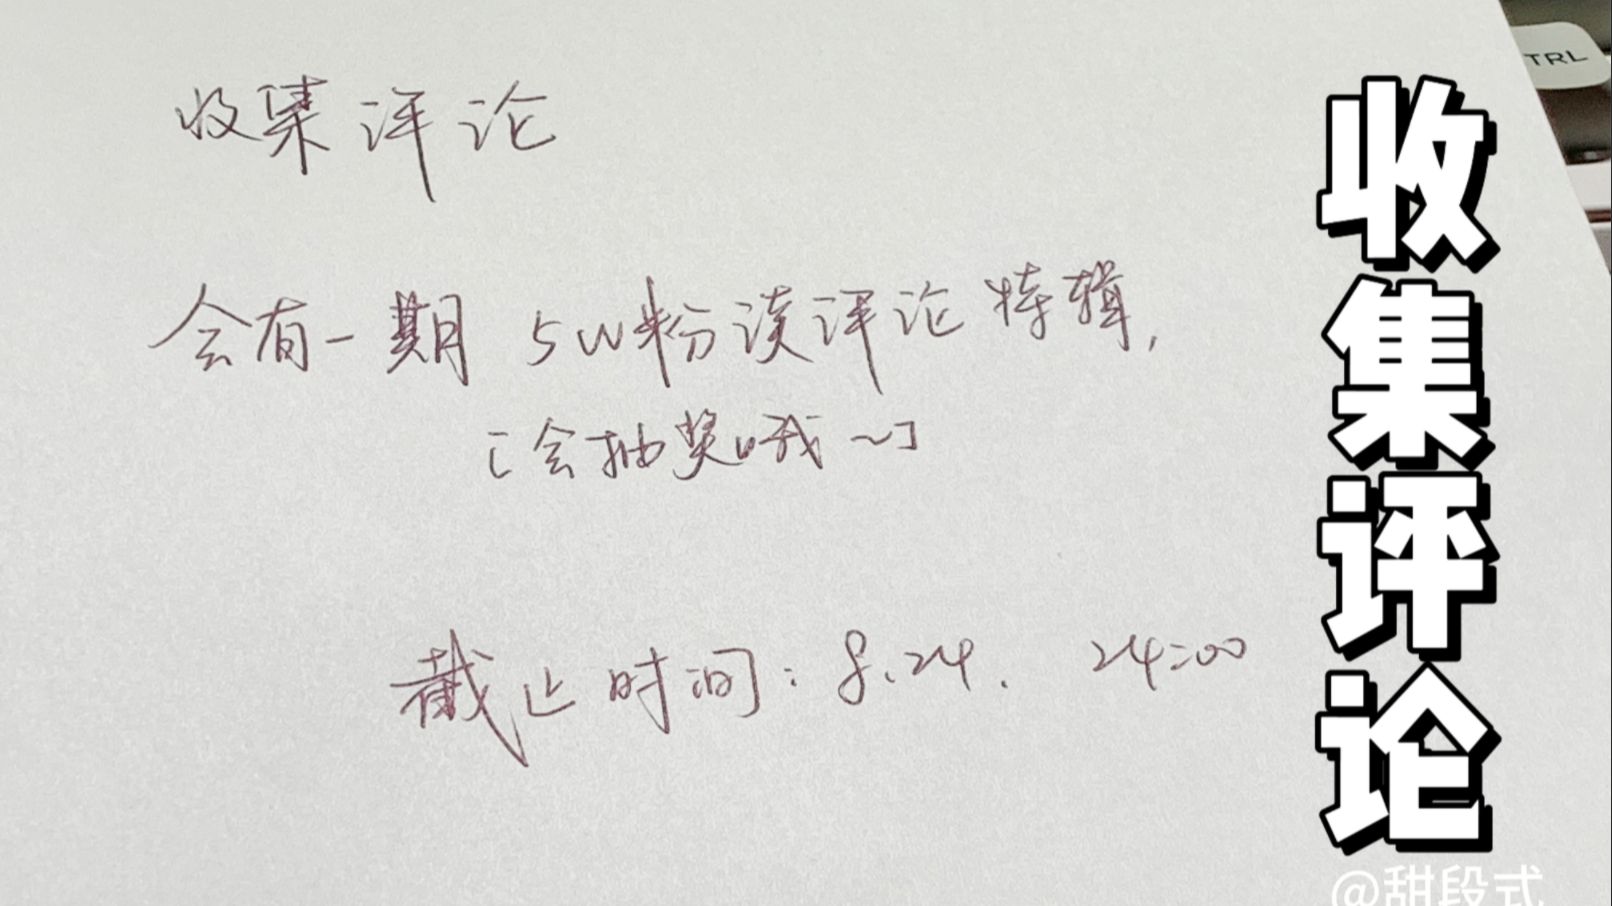 收集评论
会有一期 5W粉读评论特辑,
[会抽奖哦~]
截止时间: 8.24. 24:00
收集评论
@甜段式
TRL